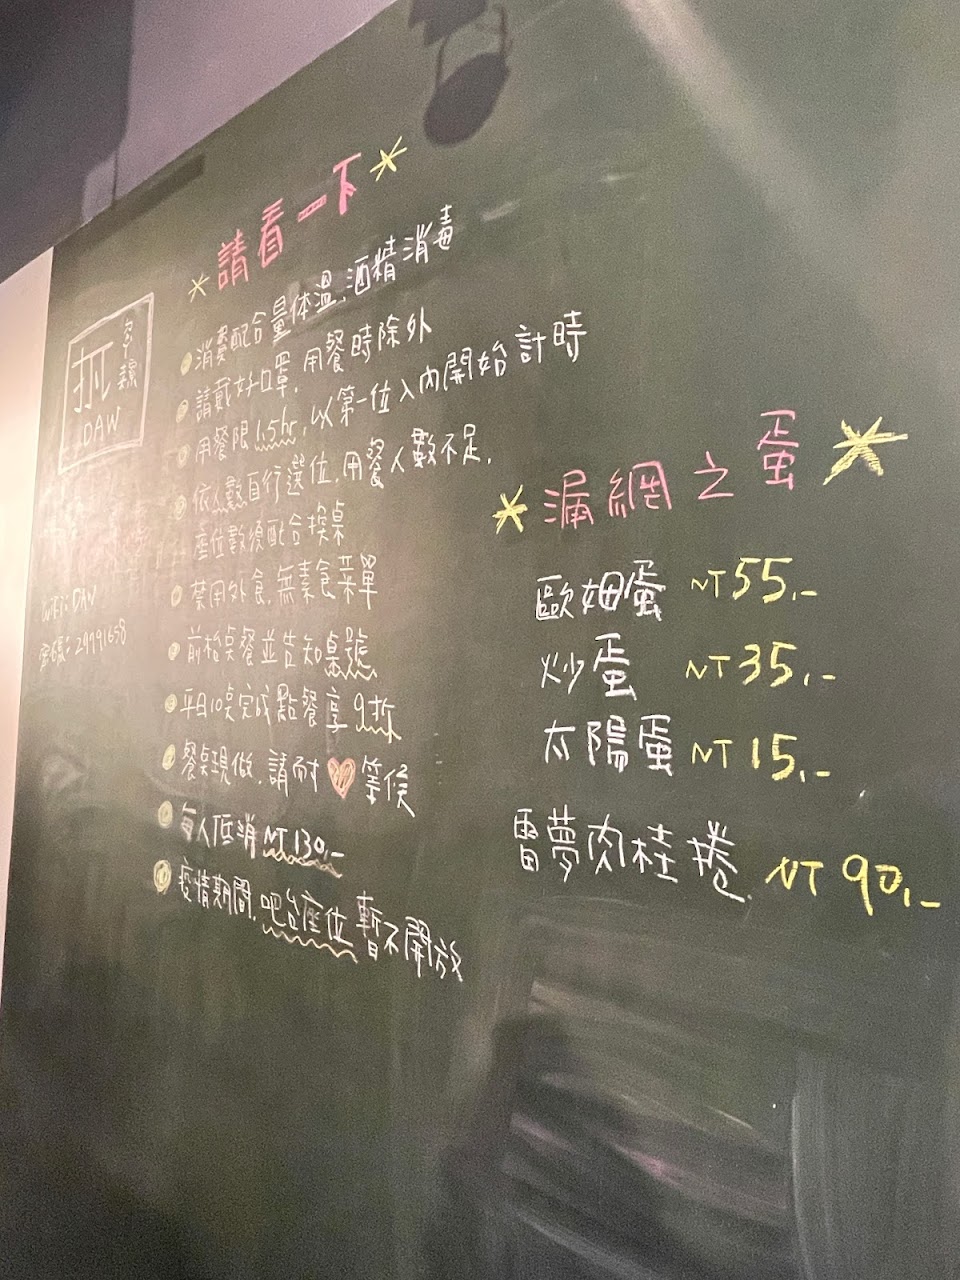 請看一下
消費配合量体溫、酒精消毒
請戴好口罩，用餐時除外
用餐限1.5hr，以第一位入內開始計時
依人數自行選位，用餐人數不足，
座位數須配合換桌
禁用外食，無素食菜單
前枱點餐並告知桌號
平日10點完成點餐享9折
餐點現做，請耐♡等候
每人低消NT130.-
疫情期間，吧台座位暫不開放
抓
DAW
WiFi: DAW
密碼: 29791658
漏網之蛋
歐姆蛋 NT55.-
炒蛋 NT35.-
太陽蛋 NT15.-
雷夢肉桂捲 NT90.-